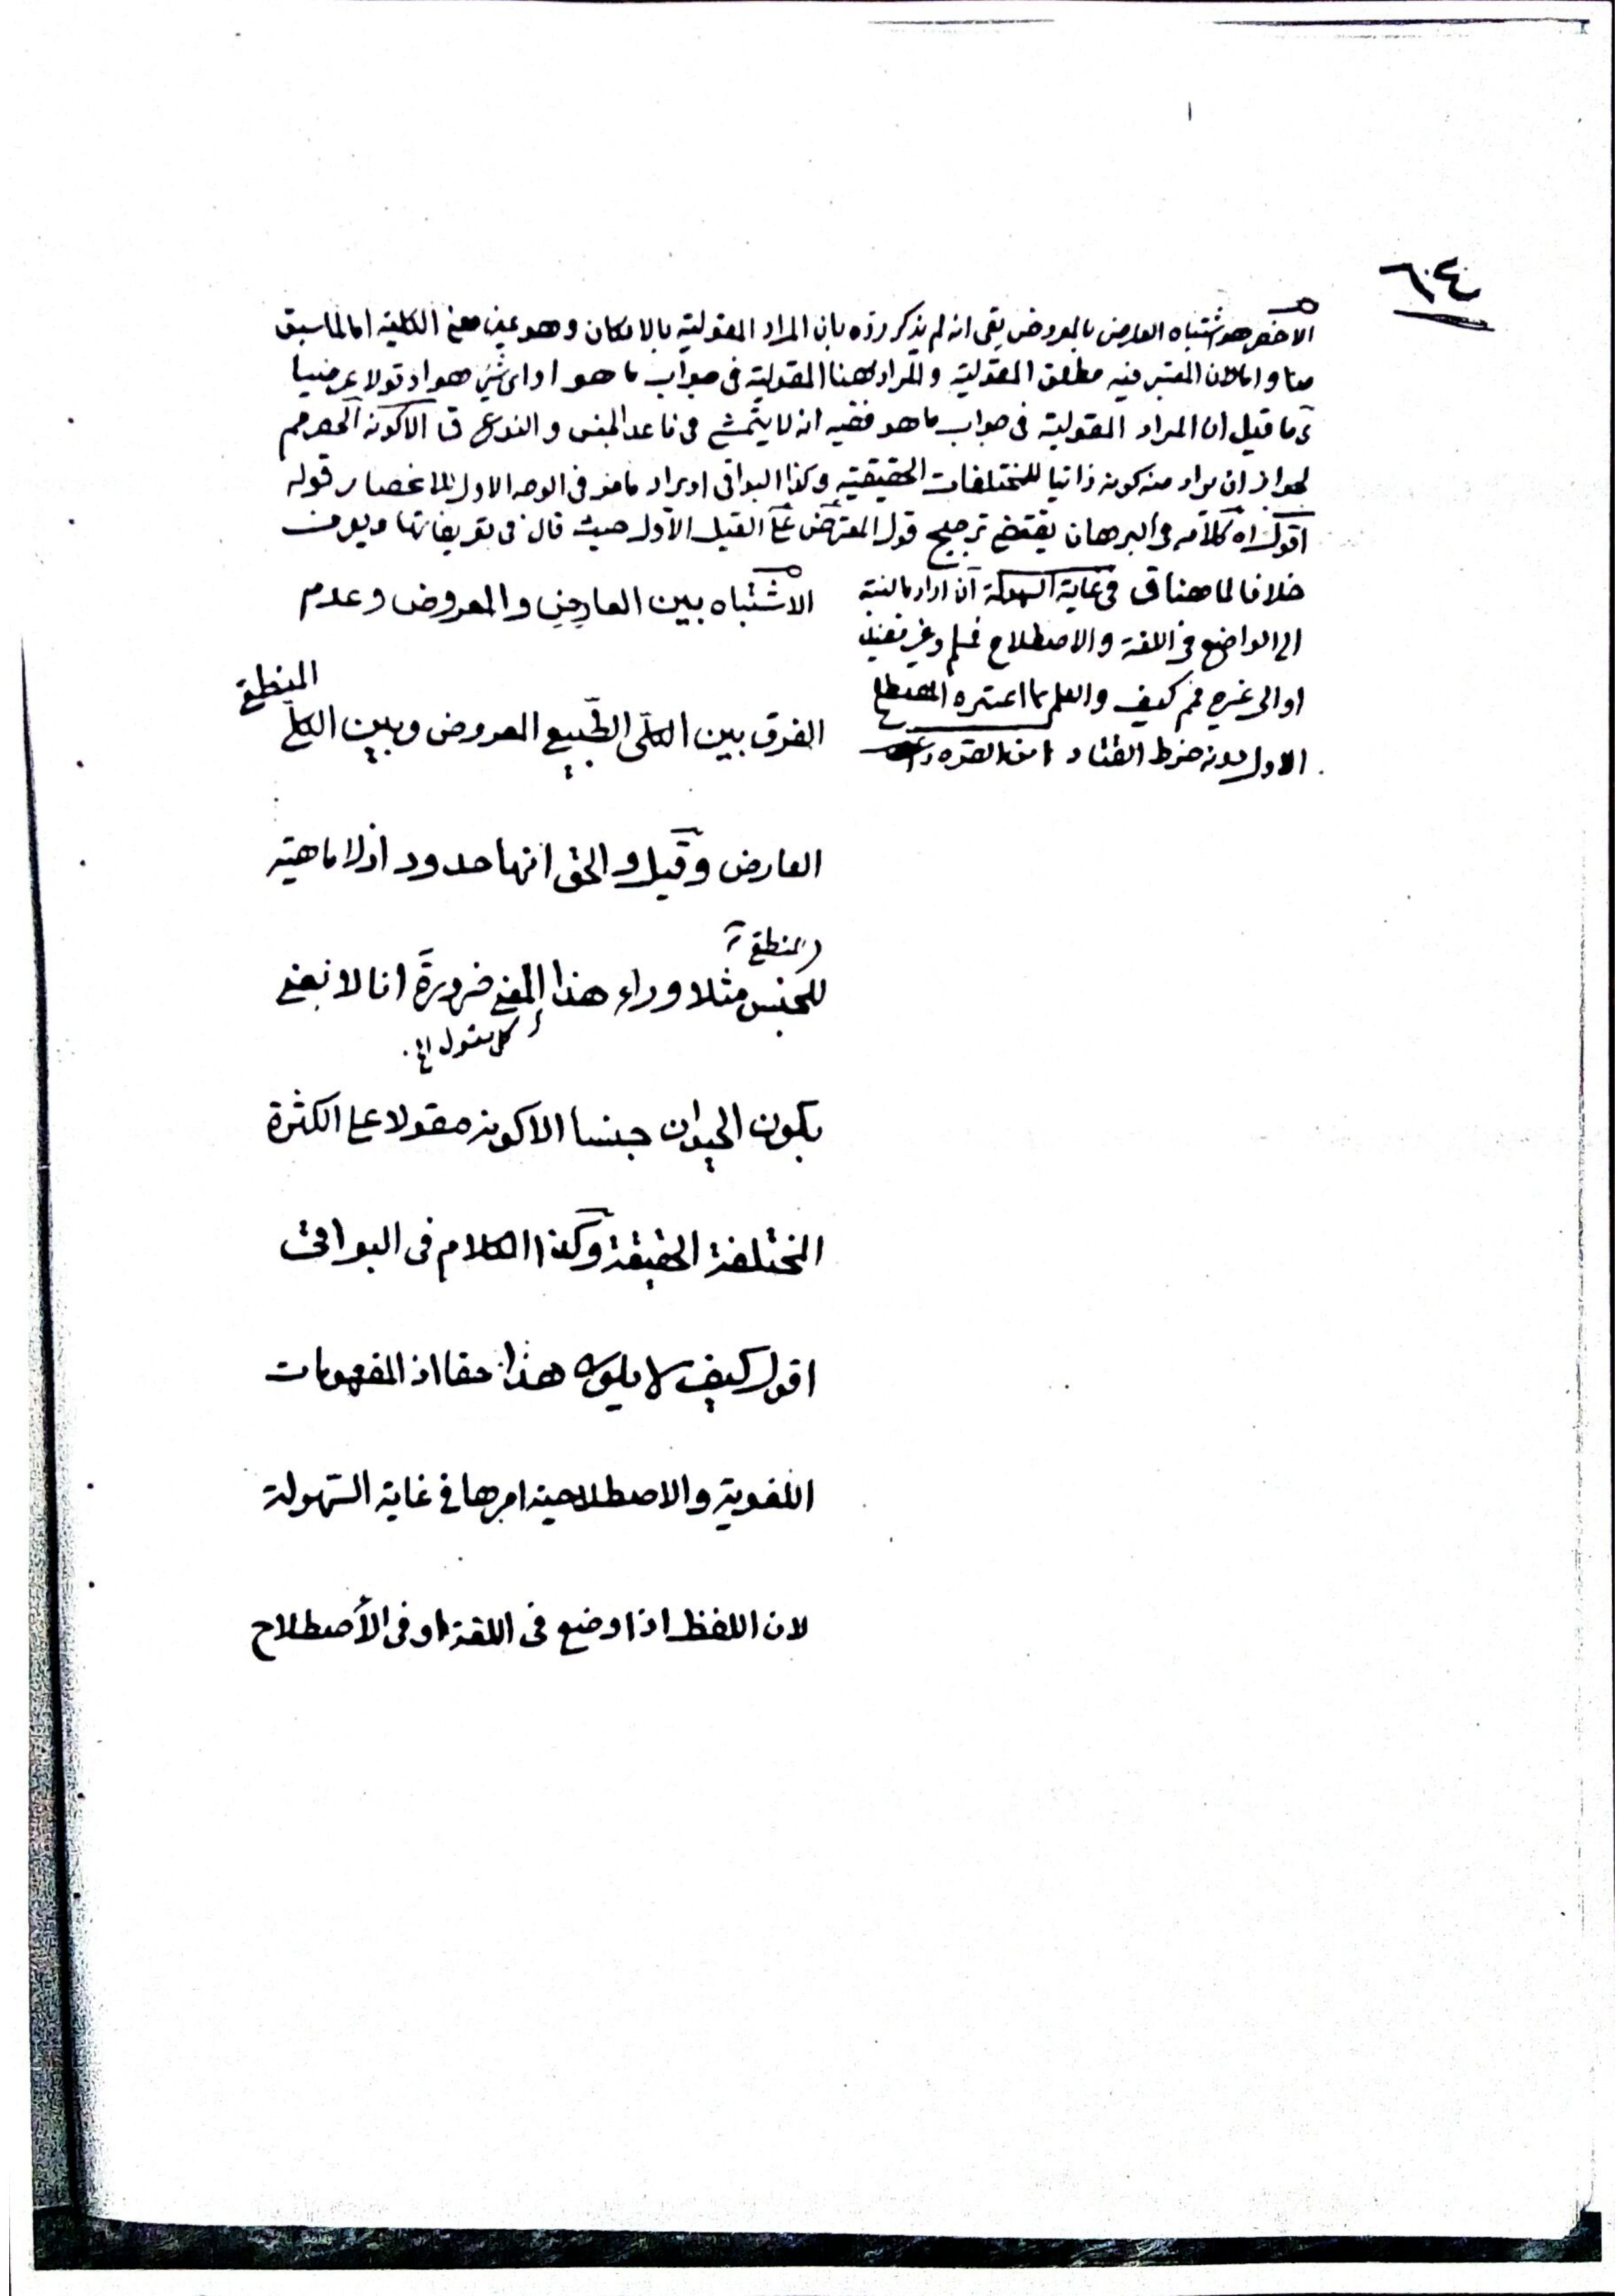 ٦٠٤
الاخصر هو اشتباه العارض بالمعروض بقى انه لم يذكر رده بان المراد المقولية بالامكان وهو عين معنى الكلية اما لما سبق
منا واما لان المعتبر فيه مطلق المقولية والمراد ههنا المقولية فى جواب ما هو او اى شئ هو او قولا عرضيا
ما قيل ان المراد المقولية فى جواب ما هو ففيه انه لا يتمشى فى ما عدا الجنس والنوع ق الا كونه الحصر مم
لجواز ان يراد منه كونه ذاتيا للمختلفات الحقيقية وكذا البواقى او يراد ما مر فى الوجه الاول الانحصار قوله
اقول اه كلامه فى البرهان يقتضى ترجيح قول المعترض على القيل الاول حيث قال فى تعريفاتها
خلافا لما هنا ق فى غاية السهولة ان اراد بالنسبة
الى الواضع فى اللغة والاصطلاح فمسلم وغير مفيد
او الى غيره فمم كيف والعلم بما اعتبره المصطلح
الاول دونه خرط القتاد
الاشتباه بين العارض والمعروض وعدم
المنطقى
الفرق بين الكلّى الطّبيعى المعروض وبين الكلّى
العارض وقيل والحق انها حدود اذ لا ماهية
المنطقى
للجنس مثلا وراء هذا المعنى ضرورة انا لا نعنى
كلى مقول الخ
بكون الحيوان جنسا الا كونه مقولا على الكثرة
المختلفة الحقيقة وكذا الكلام فى البواقى
اقول كيف لا يكون هذا حقا اذ المفهومات
اللغوية والاصطلاحية امرها فى غاية السّهولة
لان اللفظ اذا وضع فى اللغة او فى الاصطلاح